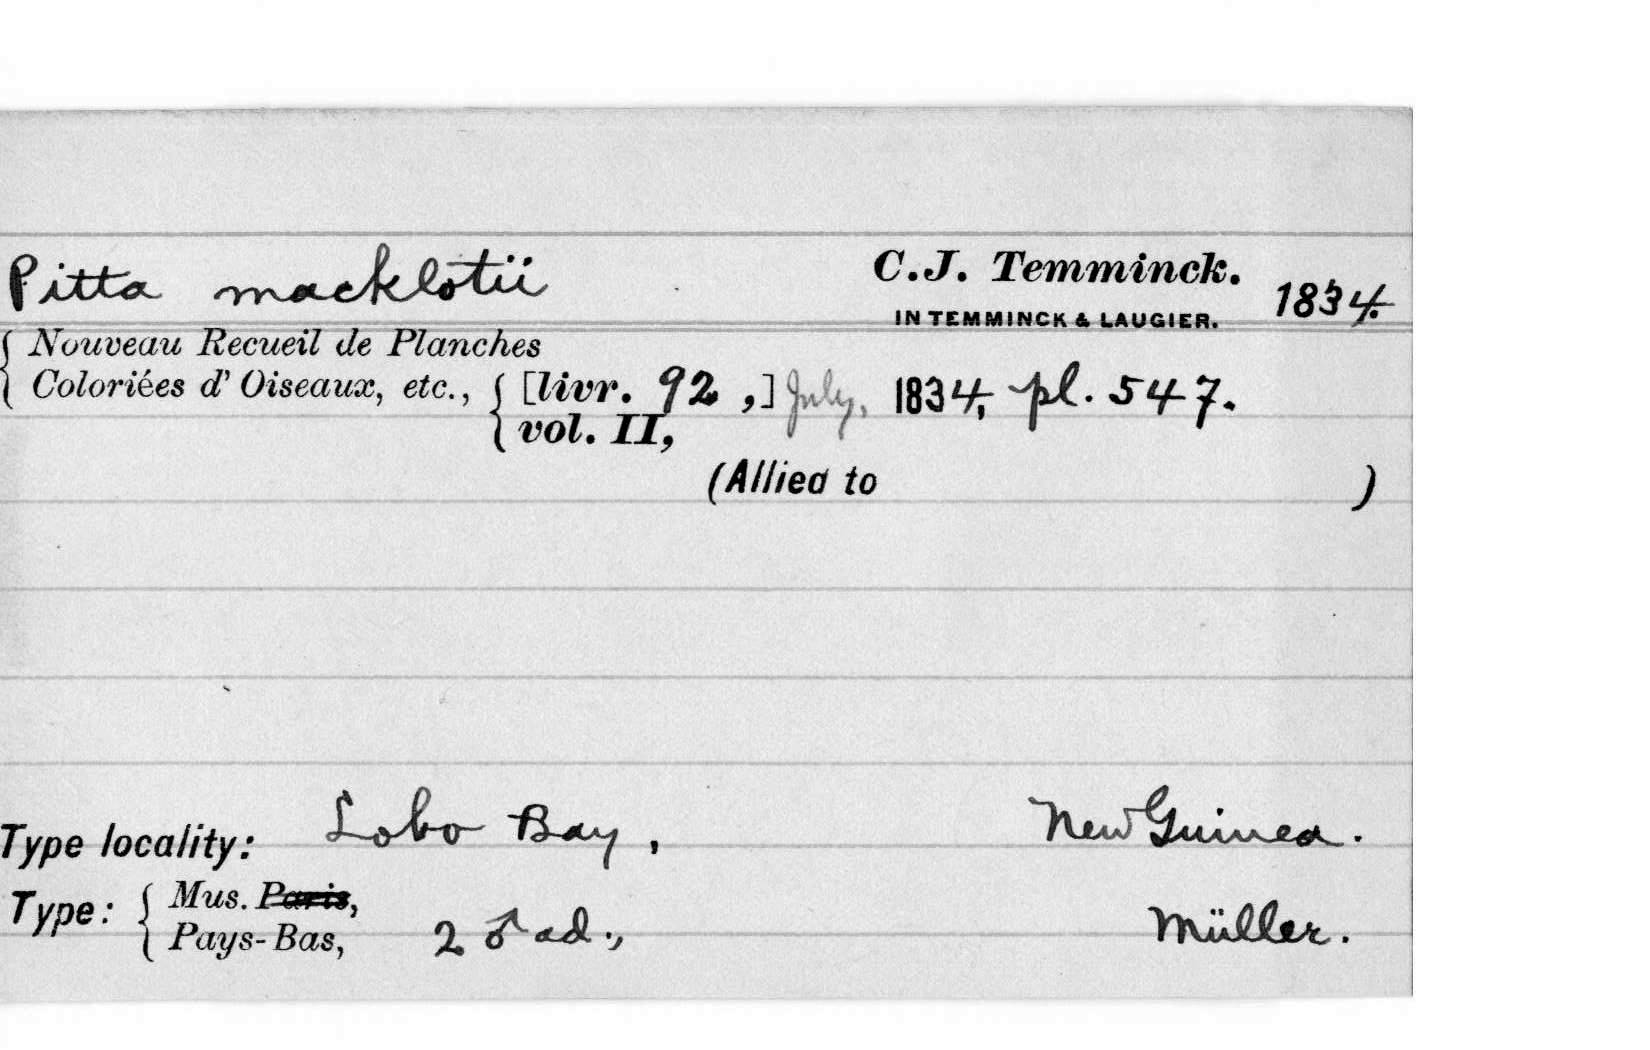 Pitta macklotii C.J. Temminck. 1834.
IN TEMMINCK & LAUGIER.
Nouveau Recueil de Planches
Coloriées d' Oiseaux, etc., [livr. 92 ,] July, 1834, pl. 547.
vol. II,
(Allied to )
Type locality: Lobo Bay, New Guinea.
Type: Mus. Paris,
Pays-Bas, 2 ♂ ad., Müller.